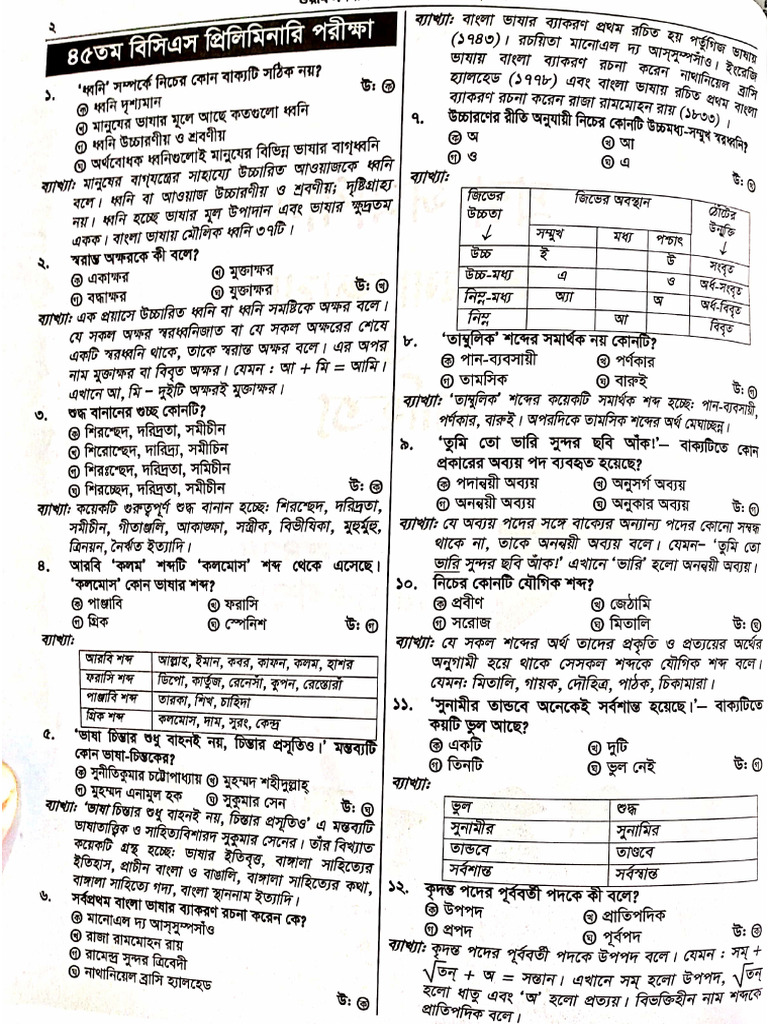 ২
৪৫তম বিসিএস প্রিলিমিনারি পরীক্ষা
১. 'ধ্বনি' সম্পর্কে নিচের কোন বাক্যটি সঠিক নয়?
ⓚ ধ্বনি দৃশ্যমান উ: ⓚ
ⓚ মানুষের ভাষার মূলে আছে কতগুলো ধ্বনি
ⓖ ধ্বনি উচ্চারণীয় ও শ্রবণীয়
ⓖ অর্থবোধক ধ্বনিগুলোই মানুষের বিভিন্ন ভাষার বাগ্‌ধ্বনি
ব্যাখ্যা: মানুষের বাগ্‌যন্ত্রের সাহায্যে উচ্চারিত আওয়াজকে ধ্বনি
বলে। ধ্বনি বা আওয়াজ উচ্চারণীয় ও শ্রবণীয়; দৃষ্টিগ্রাহ্য
নয়। ধ্বনি হচ্ছে ভাষার মূল উপাদান এবং ভাষার ক্ষুদ্রতম
একক। বাংলা ভাষায় মৌলিক ধ্বনি ৩৭টি।
২. স্বরান্ত অক্ষরকে কী বলে?
ক একাক্ষর খ মুক্তাক্ষর
গ বদ্ধাক্ষর ঘ যুক্তাক্ষর উ: খ
ব্যাখ্যা: এক প্রয়াসে উচ্চারিত ধ্বনি বা ধ্বনি সমষ্টিকে অক্ষর বলে।
যে সকল অক্ষর স্বরধ্বনিজাত বা যে সকল অক্ষরের শেষে
একটি স্বরধ্বনি থাকে, তাকে স্বরান্ত অক্ষর বলে। এর অপর
নাম মুক্তাক্ষর বা বিবৃত অক্ষর। যেমন : আ + মি = আমি।
এখানে আ, মি – দুইটি অক্ষরই মুক্তাক্ষর।
৩. শুদ্ধ বানানের গুচ্ছ কোনটি?
ক শিরশ্ছেদ, দরিদ্রতা, সমীচীন
খ শিরোশ্ছেদ, দারিদ্র্য, সমীচীন
গ শিরঃশ্ছেদ, দরিদ্রতা, সমিচীন
ঘ শিরচ্ছেদ, দরিদ্রতা, সমীচীন উ: ক
ব্যাখ্যা: কয়েকটি গুরুত্বপূর্ণ শুদ্ধ বানান হচ্ছে: শিরশ্ছেদ, দরিদ্রতা,
সমীচীন, গীতাঞ্জলি, আকাঙ্ক্ষা, সস্ত্রীক, বিভীষিকা, মুহুর্মুহু,
ত্রিনয়ন, নৈর্ঋত ইত্যাদি।
৪. আরবি 'কলম' শব্দটি 'কলমোস' শব্দ থেকে এসেছে।
'কলমোস' কোন ভাষার শব্দ?
ক পাঞ্জাবি খ ফরাসি
গ গ্রিক ঘ স্পেনিশ উ: গ
ব্যাখ্যা:
আরবি শব্দ আল্লাহ, ইমান, কবর, কাফন, কলম, হাশর
ফরাসি শব্দ ডিপো, কার্তুজ, রেনেসাঁ, কুপন, রেস্তোরাঁ
পাঞ্জাবি শব্দ তারকা, শিখ, চাহিদা
গ্রিক শব্দ কলমোস, দাম, সুরং, কেন্দ্র
৫. 'ভাষা চিন্তার শুধু বাহনই নয়, চিন্তার প্রসূতিও।' মন্তব্যটি
কোন ভাষা-চিন্তকের?
ক সুনীতিকুমার চট্টোপাধ্যায় খ মুহম্মদ শহীদুল্লাহ্
গ মুহম্মদ এনামুল হক ঘ সুকুমার সেন উ: ঘ
ব্যাখ্যা: 'ভাষা চিন্তার শুধু বাহনই নয়, চিন্তার প্রসূতিও' এ মন্তব্যটি
ভাষাতাত্ত্বিক ও সাহিত্যবিশারদ সুকুমার সেনের। তাঁর বিখ্যাত
কয়েকটি গ্রন্থ হচ্ছে: ভাষার ইতিবৃত্ত, বাঙ্গালা সাহিত্যের
ইতিহাস, প্রাচীন বাংলা ও বাঙালি, বাঙ্গালা সাহিত্যের কথা,
বাঙ্গালা সাহিত্যে গদ্য, বাংলা স্থাননাম ইত্যাদি।
৬. সর্বপ্রথম বাংলা ভাষার ব্যাকরণ রচনা করেন কে?
ক মানোএল দ্য আস্‌সুম্পসাঁও
খ রাজা রামমোহন রায়
গ রামেন্দ্র সুন্দর ত্রিবেদী
ঘ নাথানিয়েল ব্রাসি হ্যালহেড
উ: ক
ব্যাখ্যা: বাংলা ভাষার ব্যাকরণ প্রথম রচিত হয় পর্তুগিজ ভাষায়
(১৭৪৩)। রচয়িতা মানোএল দ্য আস্‌সুম্পসাঁও। ইংরেজি
ভাষায় বাংলা ব্যাকরণ রচনা করেন নাথানিয়েল ব্রাসি
হ্যালহেড (১৭৭৮) এবং বাংলা ভাষায় রচিত প্রথম বাংলা
ব্যাকরণ রচনা করেন রাজা রামমোহন রায় (১৮৩৩)।
৭. উচ্চারণের রীতি অনুযায়ী নিচের কোনটি উচ্চমধ্য-সম্মুখ স্বরধ্বনি?
ক অ খ আ
গ ও ঘ এ
ব্যাখ্যা: উ: ঘ
জিভের উচ্চতা ↓ জিভের অবস্থান ঠোঁটের উন্মুক্তি ↓
সম্মুখ মধ্য পশ্চাৎ
উচ্চ ই উ সংবৃত
উচ্চ-মধ্য এ ও অর্ধ-সংবৃত
নিম্ন-মধ্য অ্যা অ অর্ধ-বিবৃত
নিম্ন আ বিবৃত
৮. 'তাম্বুলিক' শব্দের সমার্থক নয় কোনটি?
ক পান-ব্যবসায়ী খ পর্ণকার
গ তামসিক ঘ বারুই উ: গ
ব্যাখ্যা: 'তাম্বুলিক' শব্দের কয়েকটি সমার্থক শব্দ হচ্ছে: পান-ব্যবসায়ী,
পর্ণকার, বারুই। অপরদিকে তামসিক শব্দের অর্থ মেঘাচ্ছন্ন।
৯. 'তুমি তো ভারি সুন্দর ছবি আঁক!'– বাক্যটিতে কোন
প্রকারের অব্যয় পদ ব্যবহৃত হয়েছে?
ক পদান্বয়ী অব্যয় খ অনুসর্গ অব্যয়
গ অনন্বয়ী অব্যয় ঘ অনুকার অব্যয় উ: গ
ব্যাখ্যা: যে অব্যয় পদের সঙ্গে বাক্যের অন্যান্য পদের কোনো সম্বন্ধ
থাকে না, তাকে অনন্বয়ী অব্যয় বলে। যেমন– 'তুমি তো
ভারি সুন্দর ছবি আঁক!' এখানে 'ভারি' হলো অনন্বয়ী অব্যয়।
১০. নিচের কোনটি যৌগিক শব্দ?
ক প্রবীণ খ জেঠামি
গ সরোজ ঘ মিতালি উ: ঘ
ব্যাখ্যা: যে সকল শব্দের অর্থ তাদের প্রকৃতি ও প্রত্যয়ের অর্থের
অনুগামী হয়ে থাকে সেসকল শব্দকে যৌগিক শব্দ বলে।
যেমন: মিতালি, গায়ক, দৌহিত্র, পাঠক, চিকামারা।
১১. 'সুনামীর তান্ডবে অনেকেই সর্বশান্ত হয়েছে।'– বাক্যটিতে
কয়টি ভুল আছে?
ক একটি খ দুটি
গ তিনটি ঘ ভুল নেই উ: গ
ব্যাখ্যা:
ভুল শুদ্ধ
সুনামীর সুনামির
তান্ডবে তাণ্ডবে
সর্বশান্ত সর্বস্বান্ত
১২. কৃদন্ত পদের পূর্ববর্তী পদকে কী বলে?
ক উপপদ খ প্রাতিপদিক
গ প্রপদ ঘ পূর্বপদ উ: ক
ব্যাখ্যা: কৃদন্ত পদের পূর্ববর্তী পদকে উপপদ বলে। যেমন : সম্ +
√তন্ + অ = সন্তান। এখানে সম্ হলো উপপদ, √তন্
হলো ধাতু এবং 'অ' হলো প্রত্যয়। বিভক্তিহীন নাম শব্দকে
প্রাতিপদিক বলে।